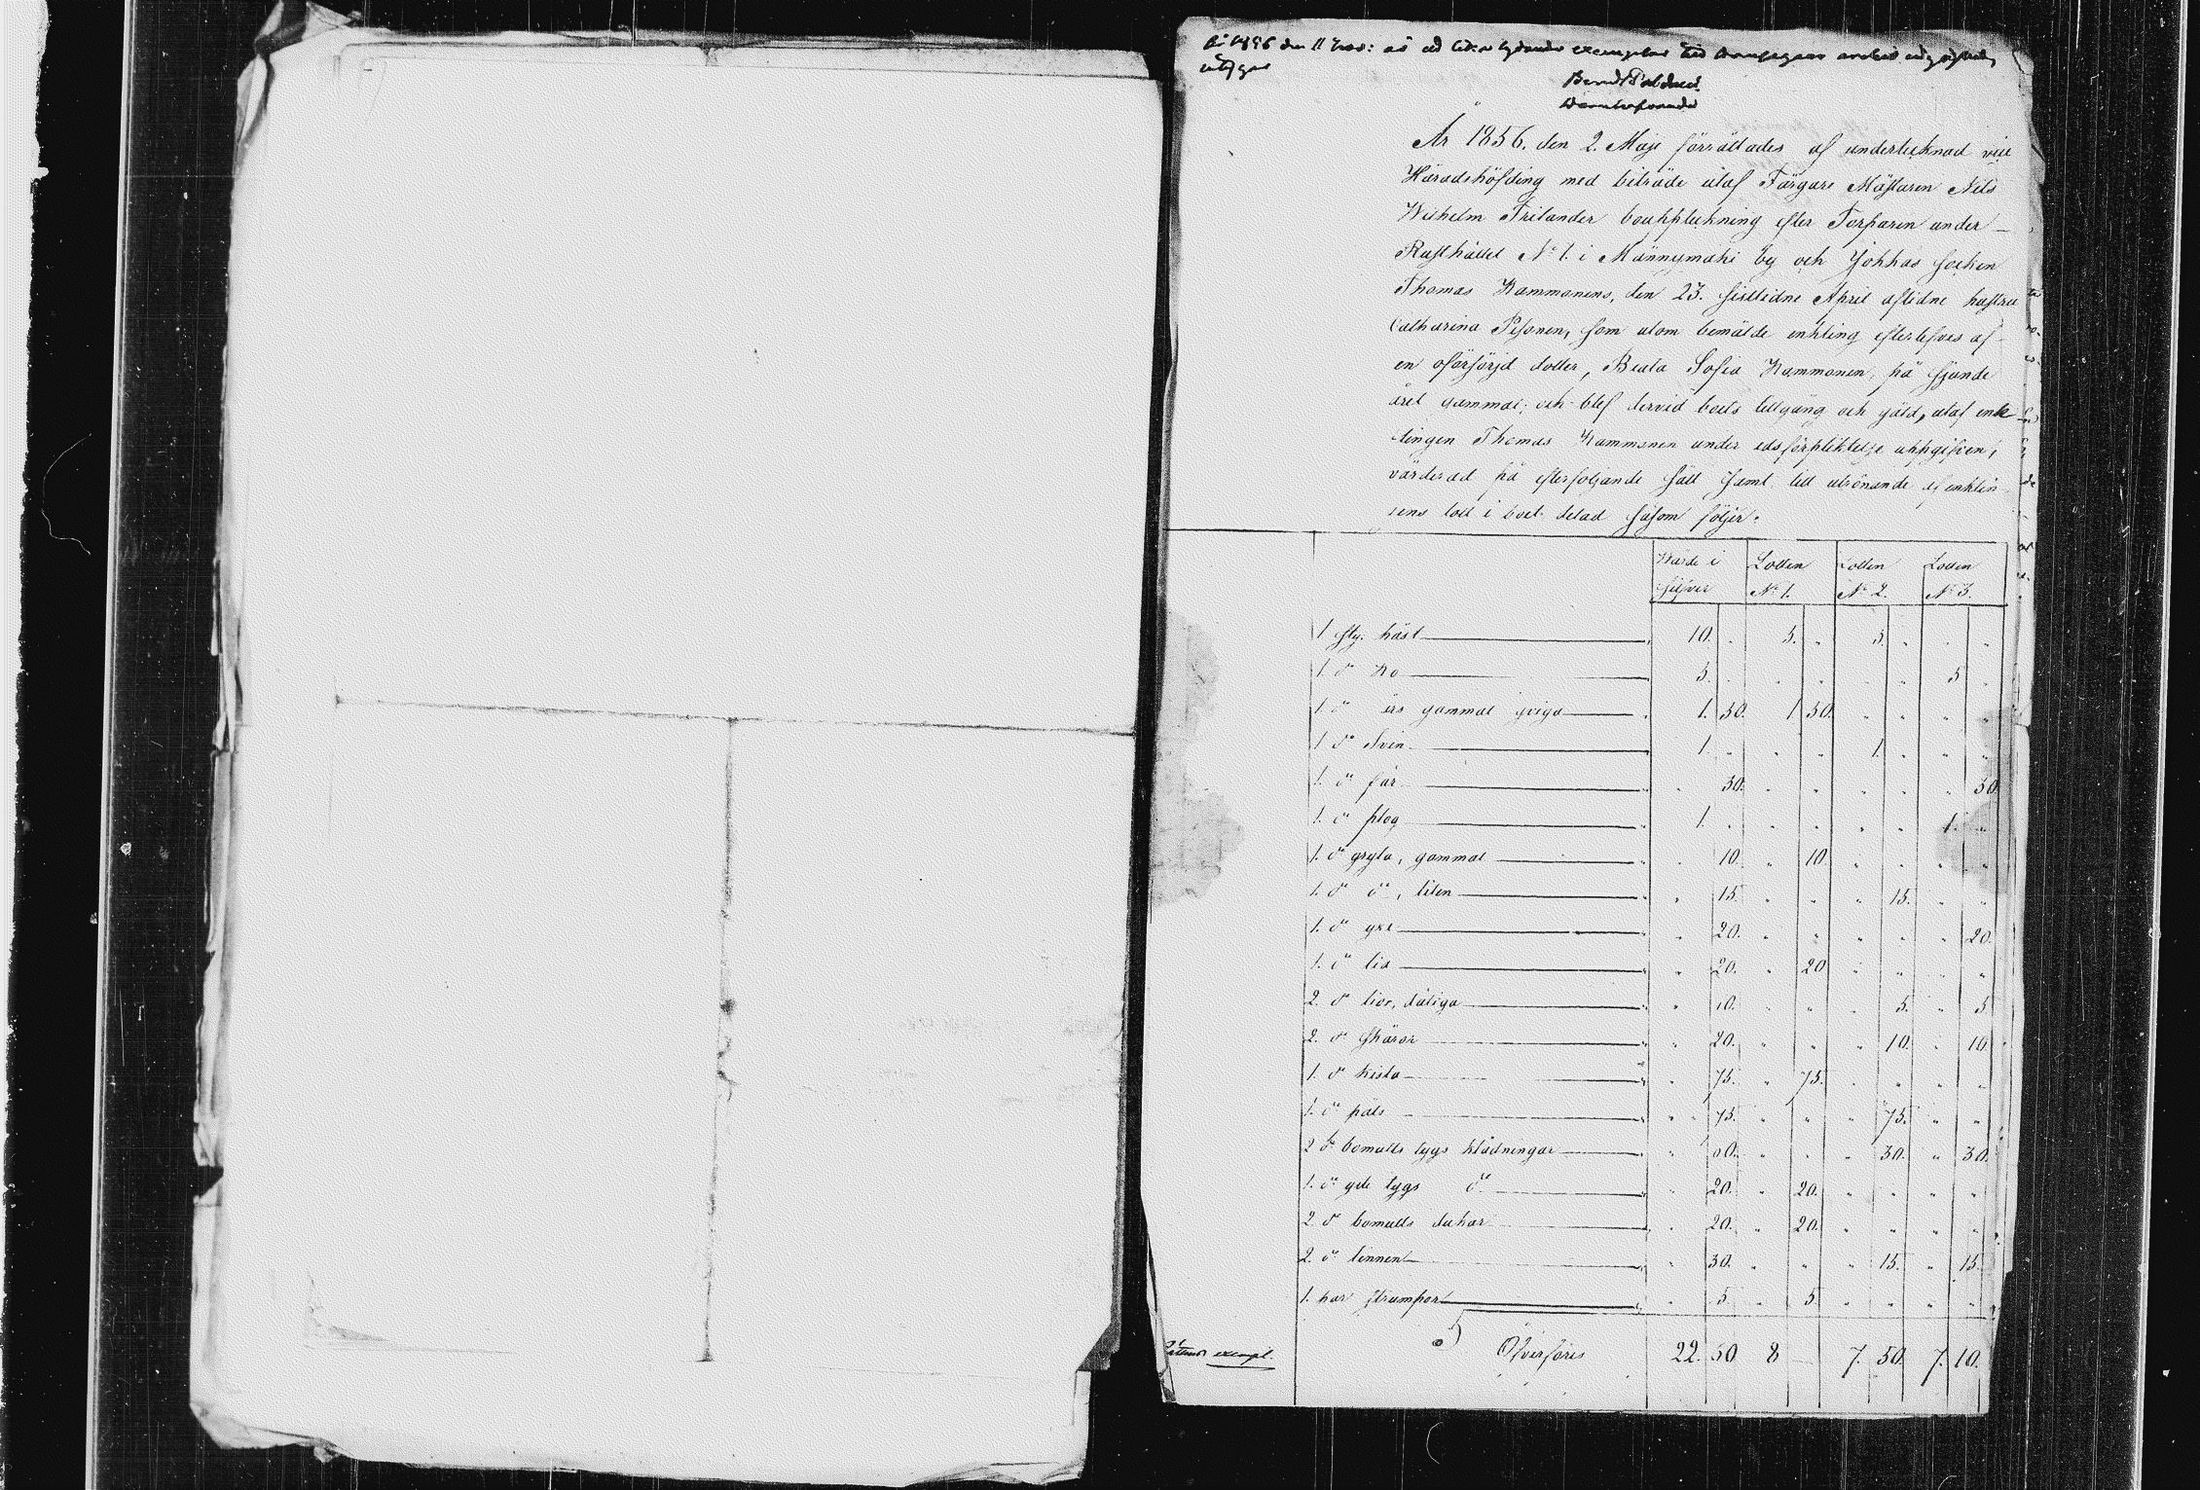 År 1856 den 11 Nov: är ett lika lydande exemplar
År 1856. den 2. Maji förrättades af undertecknad vice
Häradshöfding med biträde utaf Färgare Mästaren Nils
Wilhelm Frilander bouppteckning efter Torparen under
Rusthållet No 1. i Männymäki by och Jokkas socken
Thomas Kammonens, den 23. sistlidne April aflidne hustru
Catharina Pesonen, som utom bemälde enkling efterlefves af
en oförsörjd dotter, Beata Sofia Kammonen, på sjunde
året gammal; och blef dervid boets tillgång och gäld, utaf enk
lingen Thomas Kammonen under edsförpliktelse uppgifven,
värderad på efterföljande sätt samt till utrönande af enklin
gens lott i boet delad såsom följer:
Värde i Lotten Lotten Lotten
silfver No 1. No 2. No 3.
1 sty. häst 10. " 5. " 5. " " "
1 do ko 5. " " " " " 5 "
1 do års gammal qviga 1. 50. 1 50. " " " "
1 do svin 1. " " " 1. " " "
1. do får " 50. " " " " " 50.
1. do plog 1. " " " " " 1. "
1. do gryta, gammal " 10. " 10. " " " "
1. do do, liten " 15. " " " 15. " "
1. do yxe " 20. " " " " " 20.
1. do lia " 20. " 20 " " " "
2. do lior, dåliga " 10. " " " 5. " 5.
2. do skäror " 20. " " " 10. " 10.
1. do kista " 75. " 75. " " " "
1. do päls " 75. " " " 75. " "
2 do bomulls tygs klädningar " 60. " " " 30. " 30.
1. do tygs do " 20. " 20. " " " "
2. do bomulls dukar " 20. " 20. " " " "
2. do linnen " 30. " " " 15. " 15.
1. par strumpor " 5 " 5 " " " "
exempl. Öfverföres 22. 60 8 — 7. 50. 7. 10.